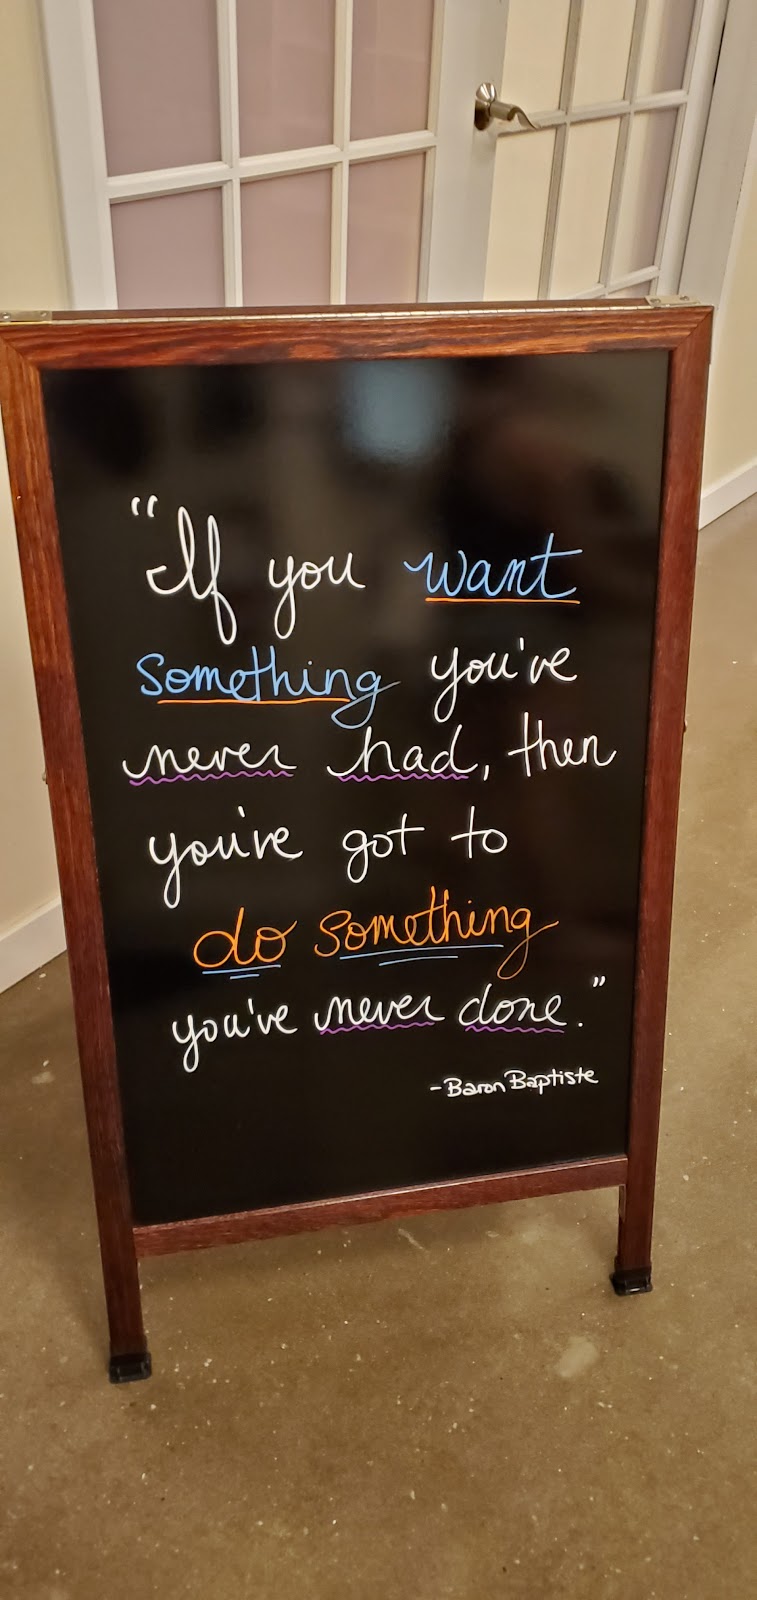 “If you want
something you've
never had, then
you've got to
do something
you've never done.”
-Baron Baptiste